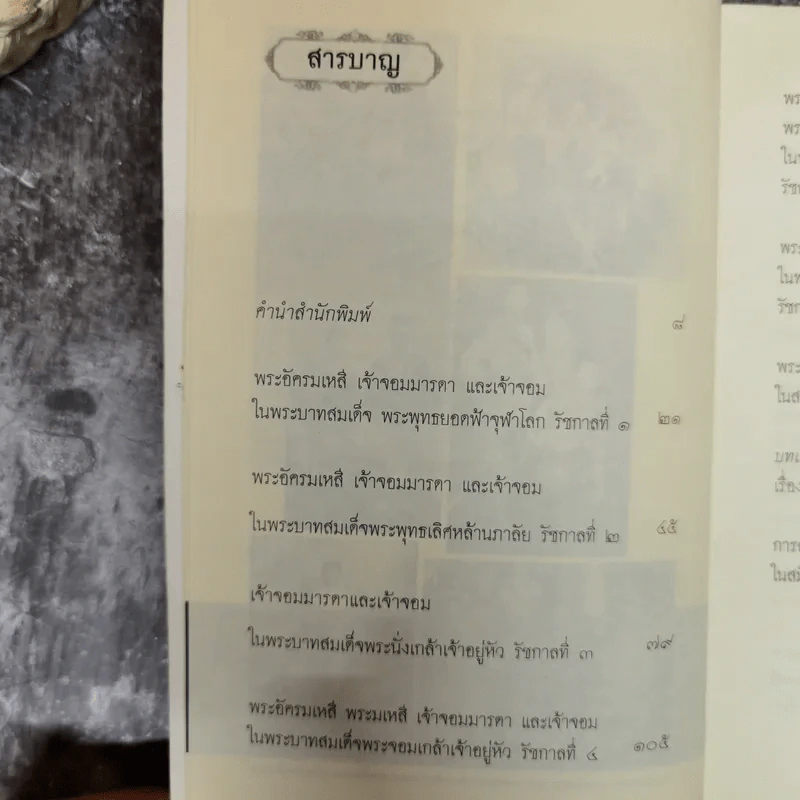 สารบาญ
คำนำสำนักพิมพ์ ๘
พระอัครมเหสี เจ้าจอมมารดา และเจ้าจอม
ในพระบาทสมเด็จ พระพุทธยอดฟ้าจุฬาโลก รัชกาลที่ ๑ ๒๑
พระอัครมเหสี เจ้าจอมมารดา และเจ้าจอม
ในพระบาทสมเด็จพระพุทธเลิศหล้านภาลัย รัชกาลที่ ๒ ๔๕
เจ้าจอมมารดาและเจ้าจอม
ในพระบาทสมเด็จพระนั่งเกล้าเจ้าอยู่หัว รัชกาลที่ ๓ ๗๙
พระอัครมเหสี พระมเหสี เจ้าจอมมารดา และเจ้าจอม
ในพระบาทสมเด็จพระจอมเกล้าเจ้าอยู่หัว รัชกาลที่ ๔ ๑๐๕